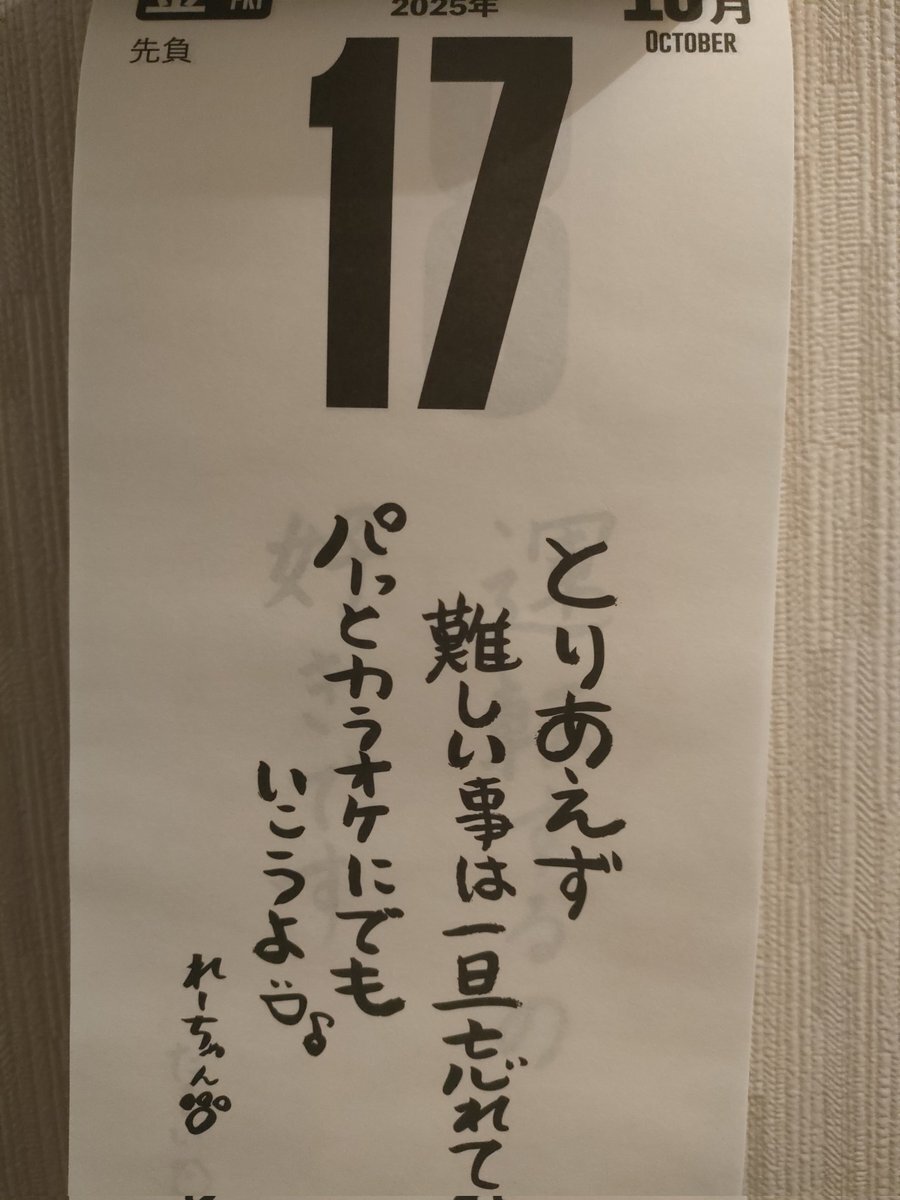 金 FRI
2025年
10月
OCTOBER
先負
17
とりあえず
難しい事は一旦忘れて
パーっとカラオケにでも
いこうよ
れーちゃん